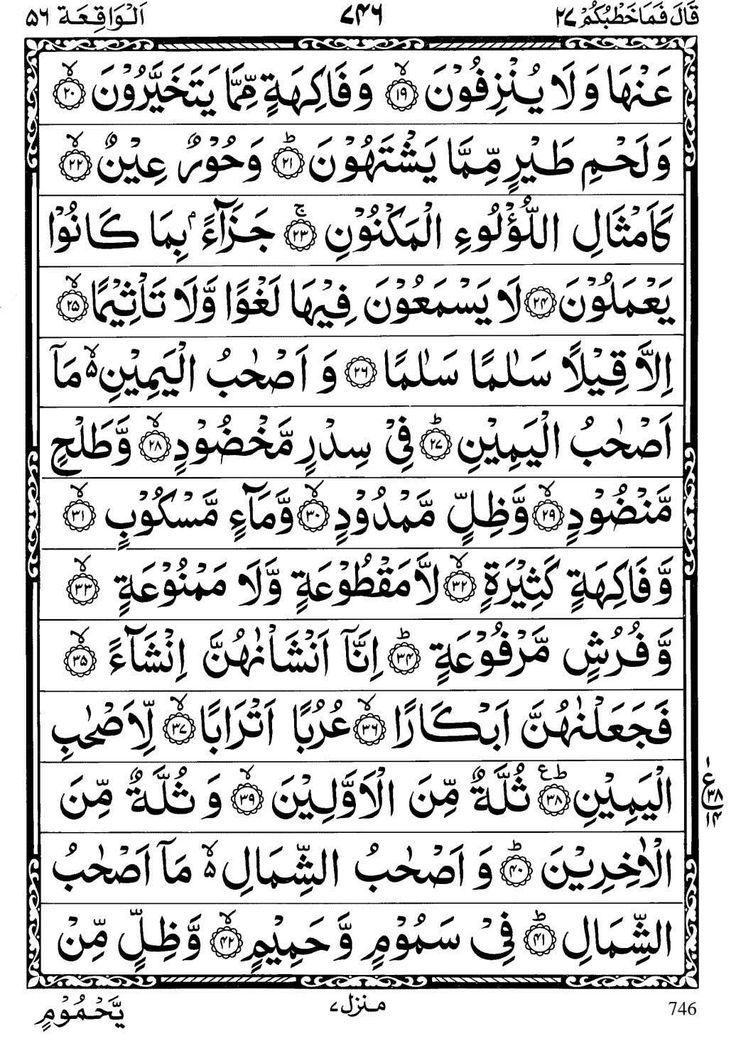 قَالَ فَمَا خَطْبُكُمْ ٢٧ ٧٤٦ اَلْوَاقِعَة ٥٦
عَنْهَا وَلَا يُنْزِفُوْنَ ۙ﴿۱۹﴾ وَفَاكِهَةٍ مِّمَّا يَتَخَيَّرُوْنَ ۙ﴿۲۰﴾
وَلَحْمِ طَيْرٍ مِّمَّا يَشْتَهُوْنَ ؕ﴿۲۱﴾ وَحُوْرٌ عِيْنٌ ۙ﴿۲۲﴾
كَاَمْثَالِ اللُّؤْلُوءِ الْمَكْنُوْنِ ۚ﴿۲۳﴾ جَزَآءًۢ بِمَا كَانُوْا
يَعْمَلُوْنَ ﴿۲۴﴾ لَا يَسْمَعُوْنَ فِيْهَا لَغْوًا وَّلَا تَاْثِيْمًا ۙ﴿۲۵﴾
اِلَّا قِيْلًا سَلٰمًا سَلٰمًا ﴿۲۶﴾ وَ اَصْحٰبُ الْيَمِيْنِ ۙ۬ مَاۤ
اَصْحٰبُ الْيَمِيْنِ ؕ﴿۲۷﴾ فِيْ سِدْرٍ مَّخْضُوْدٍ ۙ﴿۲۸﴾ وَّطَلْحٍ
مَّنْضُوْدٍ ۙ﴿۲۹﴾ وَّظِلٍّ مَّمْدُوْدٍ ۙ﴿۳۰﴾ وَّمَآءٍ مَّسْكُوْبٍ ۙ﴿۳۱﴾
وَّفَاكِهَةٍ كَثِيْرَةٍ ۙ﴿۳۲﴾ لَّا مَقْطُوْعَةٍ وَّلَا مَمْنُوْعَةٍ ۙ﴿۳۳﴾
وَّفُرُشٍ مَّرْفُوْعَةٍ ؕ﴿۳۴﴾ اِنَّاۤ اَنْشَاْنٰهُنَّ اِنْشَآءً ۙ﴿۳۵﴾
فَجَعَلْنٰهُنَّ اَبْكَارًا ۙ﴿۳۶﴾ عُرُبًا اَتْرَابًا ۙ﴿۳۷﴾ لِّاَصْحٰبِ
الْيَمِيْنِ ؕ﴿۳۸﴾ ثُلَّةٌ مِّنَ الْاَوَّلِيْنَ ۙ﴿۳۹﴾ وَ ثُلَّةٌ مِّنَ
الْاٰخِرِيْنَ ؕ﴿۴۰﴾ وَ اَصْحٰبُ الشِّمَالِ ۙ۬ مَاۤ اَصْحٰبُ
الشِّمَالِ ؕ﴿۴۱﴾ فِيْ سَمُوْمٍ وَّ حَمِيْمٍ ۙ﴿۴۲﴾ وَّظِلٍّ مِّنْ
يَّحْمُوْمٍ منزل ٧ 746
ع ۱ ۳۸ ۱۴